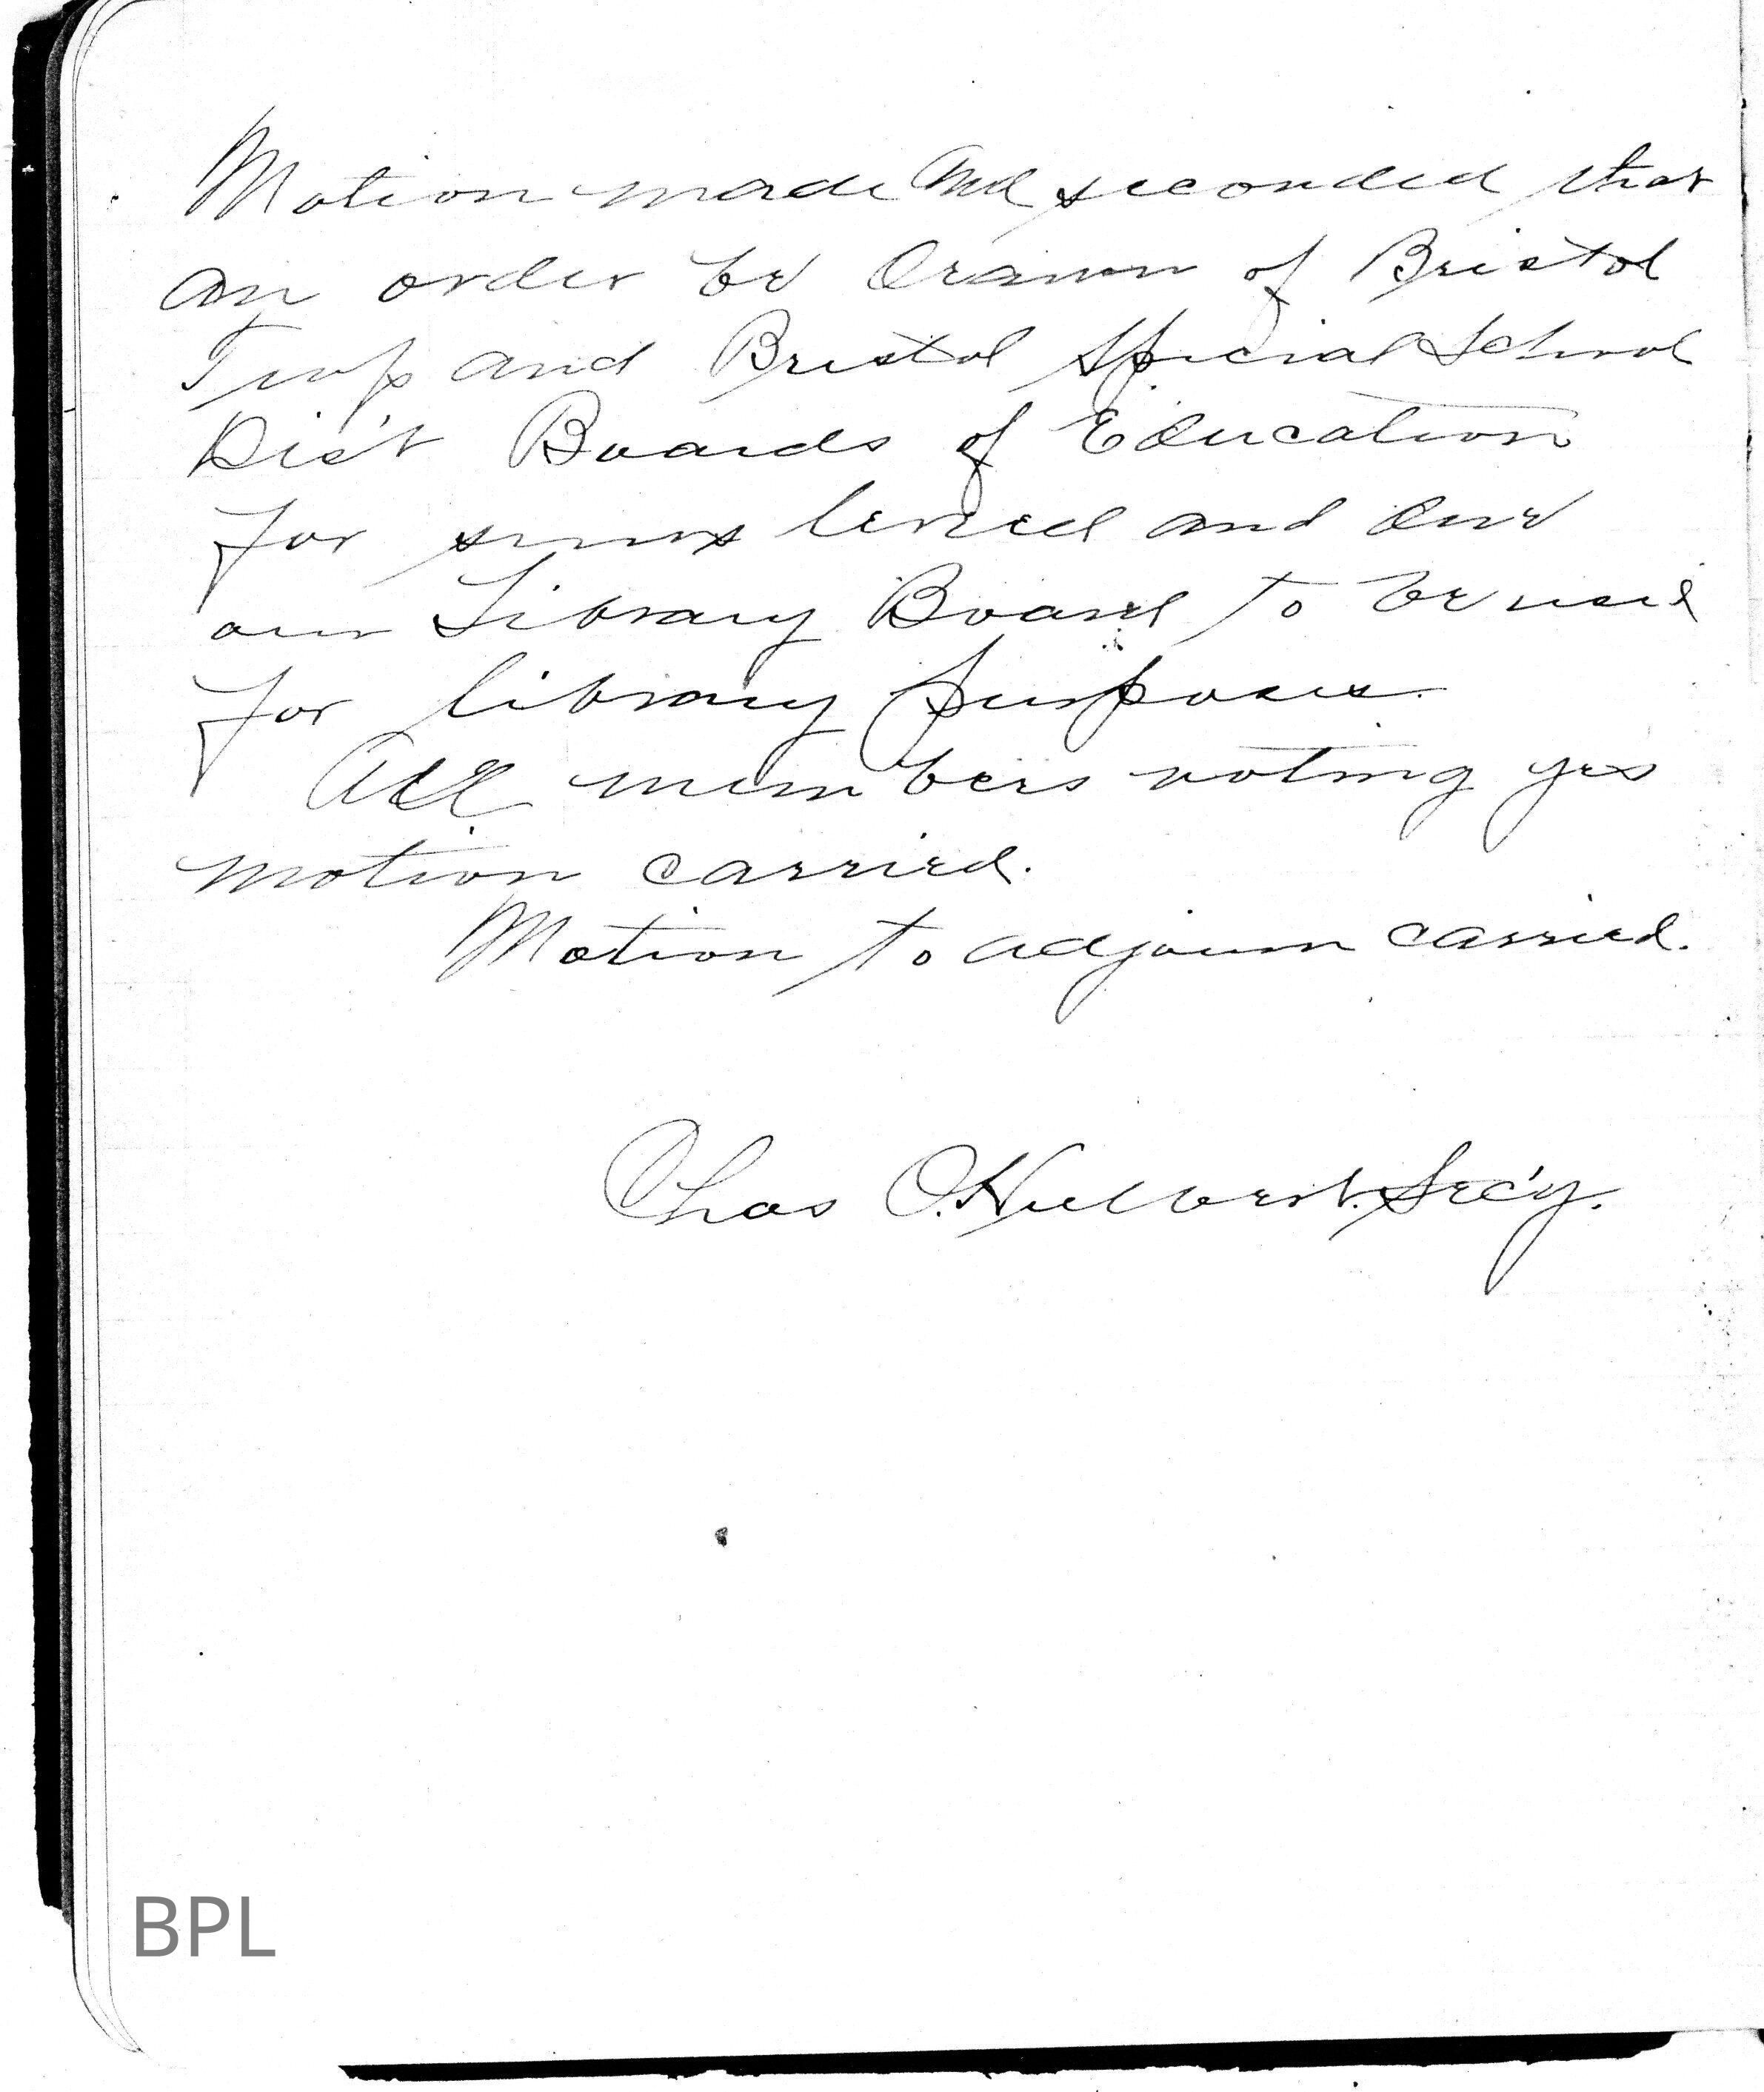 Motion made and seconded that
an order be drawn of Bristol
Twp and Bristol Special School
Dis't Boards of Education
for sums levied and due
our Library Board to be used
for library purposes.
All members voting yes
motion carried.
Motion to adjourn carried.
Chas O. Hulbert. Sec'y.
BPL